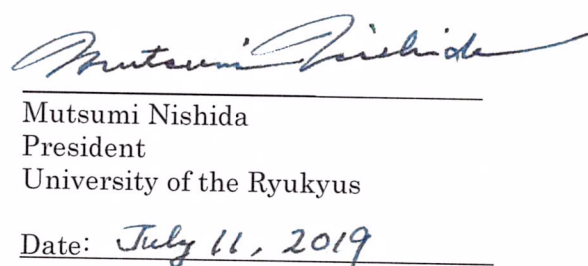 Mutsumi Nishida
Mutsumi Nishida
President
University of the Ryukyus
Date: July 11, 2019